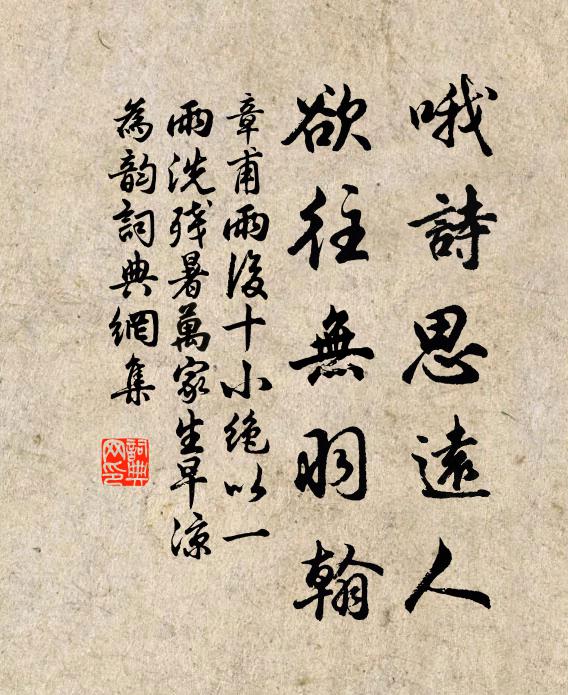 哦詩思遠人
欲往無羽翰
章甫雨後十小絶以一
雨洗殘暑萬家生早涼
為韵詞典網集
詞典
网印